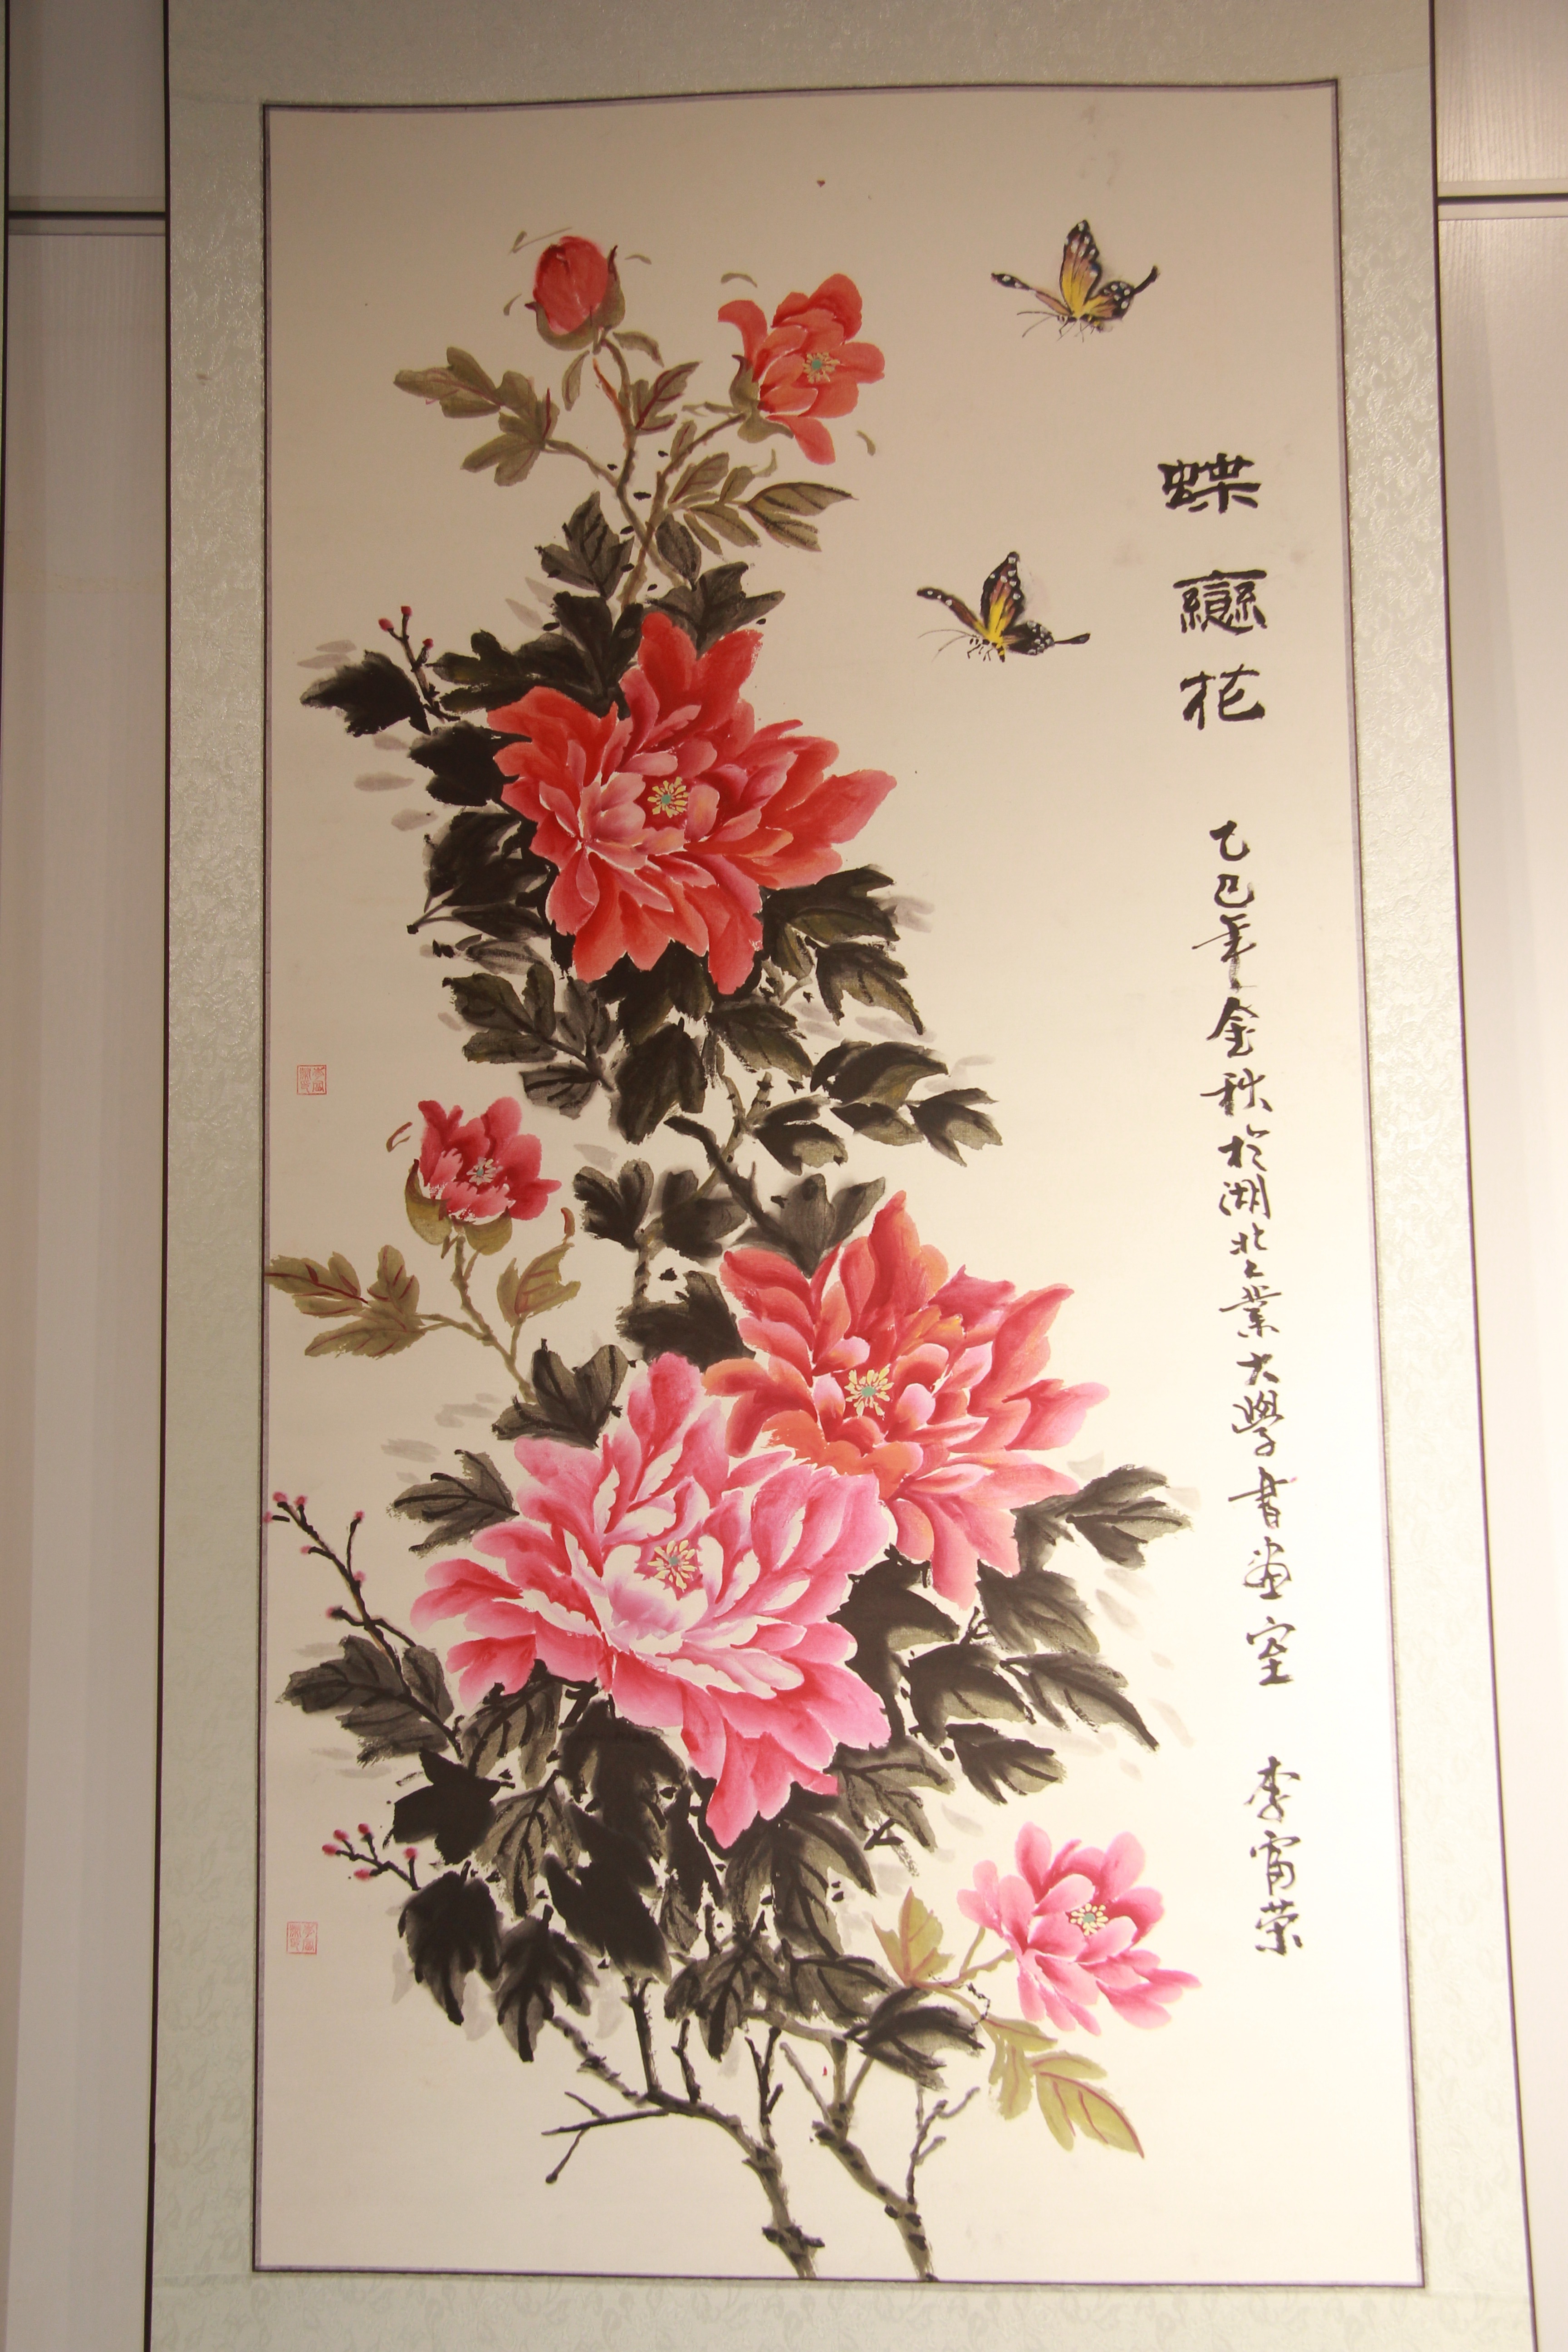 蝶戀花
乙巳年金秋於湖北工業大學書畫室
李富荣